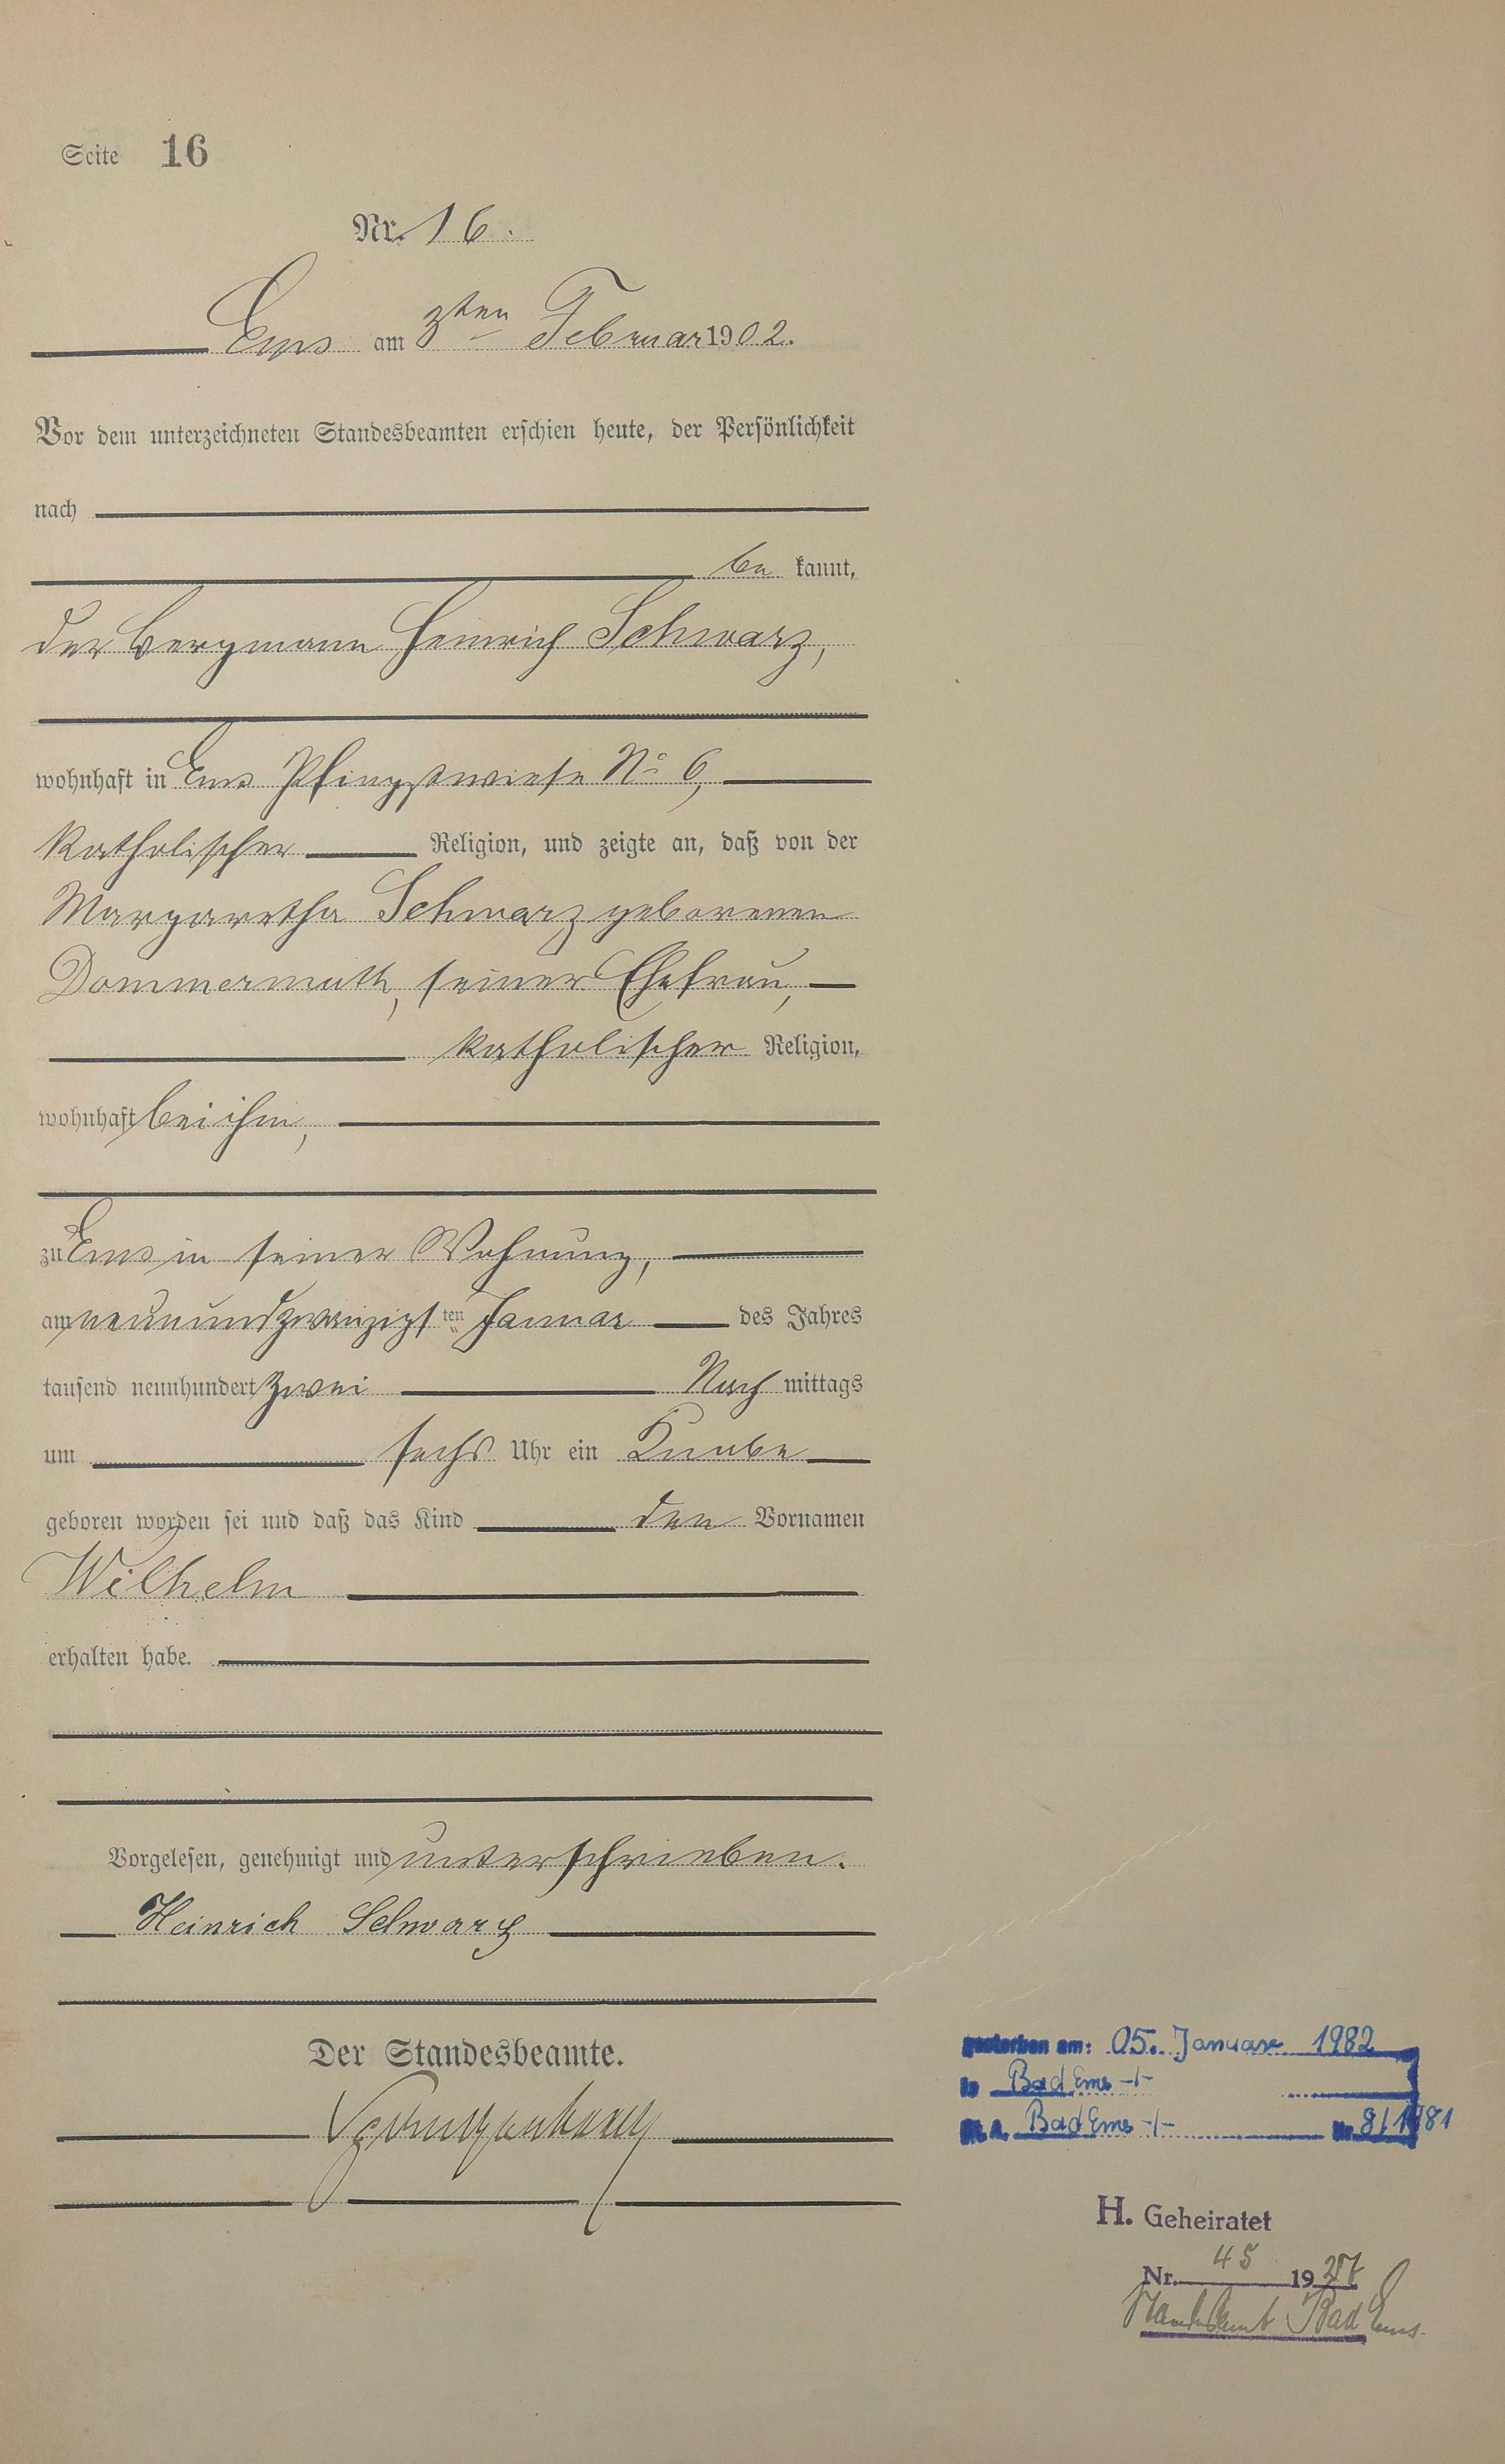 Seite 16
Nr. 16.
Ems am 3ten Februar 1902.
Vor dem unterzeichneten Standesbeamten erschien heute, der Persönlichkeit
nach
be kannt,
der Bergmann Heinrich Schwarz,
wohnhaft in Ems Pfingstwiese No 6,
katholischer Religion, und zeigte an, daß von der
Margaretha Schwarz geborenen
Dommermuth, seiner Ehefrau,
katholischer Religion,
wohnhaft bei ihm,
zu Ems in seiner Wohnung,
am neunundzwanzigsten Januar des Jahres
tausend neunhundert zwei Nach mittags
um sechs Uhr ein Knabe
geboren worden sei und daß das Kind den Vornamen
Wilhelm
erhalten habe.
Vorgelesen, genehmigt und unterschrieben.
Heinrich Schwarz
Der Standesbeamte.
gestorben am: 05. Januar 1982
in Bad Ems -/-
St. A. Bad Ems -/- Nr. 8/1981
H. Geheiratet
Nr. 45 19
Standesamt Bad Ems.